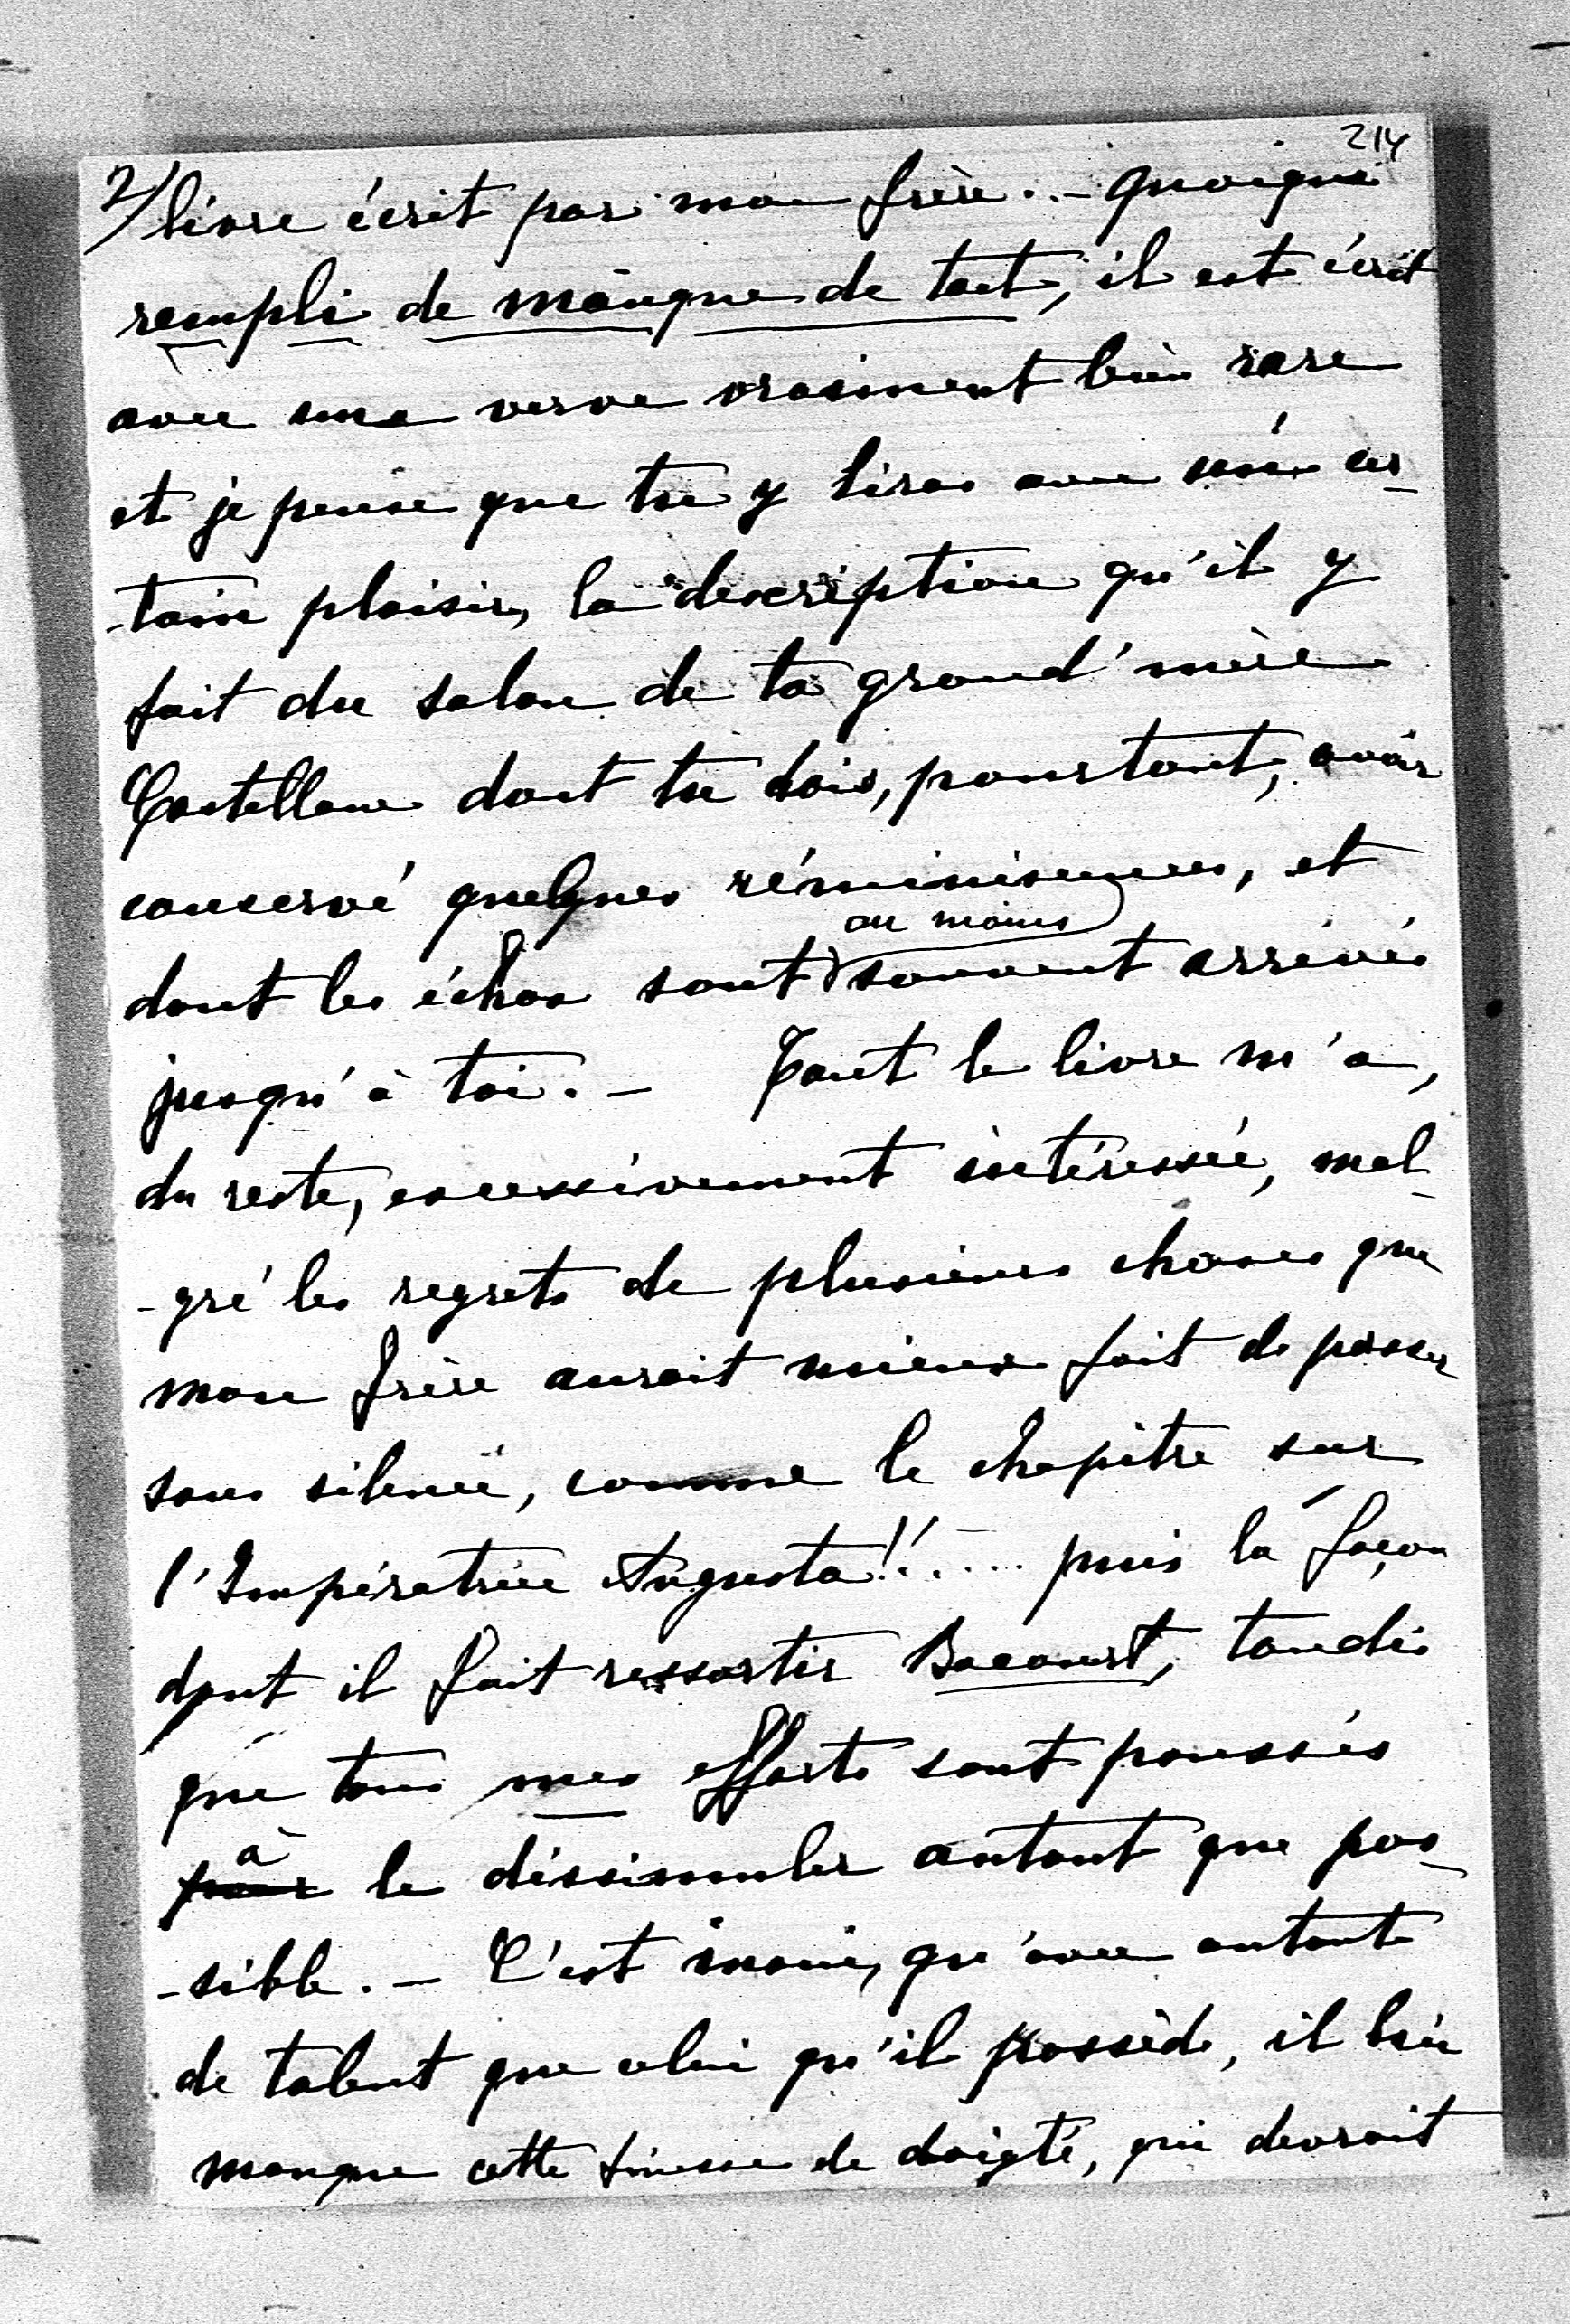 214
2/ livre écrit par mon frère. – quoique
rempli de manque de tact, il est écrit
avec une verve vraiment bien rare
et je pense que tu y liras avec un cer-
-tain plaisir, la description qu'il y
fait du salon de ta grand'mère
Castellane dont tu dois, pourtant, avoir
conservé quelques réminiscences, et
au moins
dont les échos sont souvent arrivés
jusqu'à toi. – Tout le livre m'a,
du reste, excessivement intéressée, mal-
-gré les regrets de plusieurs choses que
mon frère aurait mieux fait de passer
sous silence, comme le chapitre sur
l'Impératrice Augusta!!..... puis la façon
dont il fait ressortir Bacourt, tandis
que tous mes efforts sont poussés
à
pour le dissimuler autant que pos-
-sible. – C'est inouï, qu'avec autant
de talent que celui qu'il possède, il lui
manque cette finesse de doigté, qui devrait